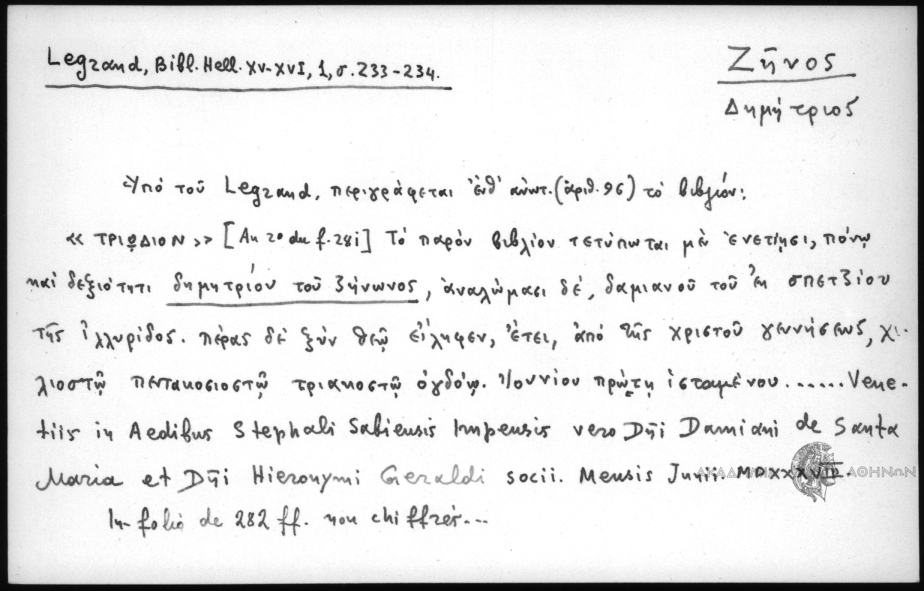 Legrand, Bibl. Hell. XV-XVI, 1, σ. 233-234.
Ζῆνος
Δημήτριος
Ὑπό τοῦ Legrand, περιγράφεται ἐνθ' ἀνωτ. (ἀριθ. 96) τό βιβλίον:
«ΤΡΙῼΔΙΟΝ» [Au 2o du f. 28i] Τό παρόν βιβλίον τετύπωται μὲν ἐνετίῃσι, πόνῳ
καί δεξιότητι δημητρίου τοῦ ζήνωνος, ἀναλώμασι δέ, δαμιανοῦ τοῦ ἐκ σπετζίου
τῆς ἰλλυρίδος. πέρας δέ ξύν θεῷ εἴληφεν, ἔτει, ἀπό τῆς χριστοῦ γεννήσεως, χι-
λιοστῷ πεντακοσιοστῷ τριακοστῷ ὀγδόῳ. Ἰουνίου πρώτῃ ἱσταμένου...... Vene-
tiis in Aedibus Stephali Sabiensis Impensis vero Dñi Damiani de Santa
Maria et Dñi Hieronymi Geraldi socii. Mensis Junii.
ΑΚΑΔΗΜΙΑ ΑΘΗΝΩΝ
In-folio de 282 ff. non chiffrés...